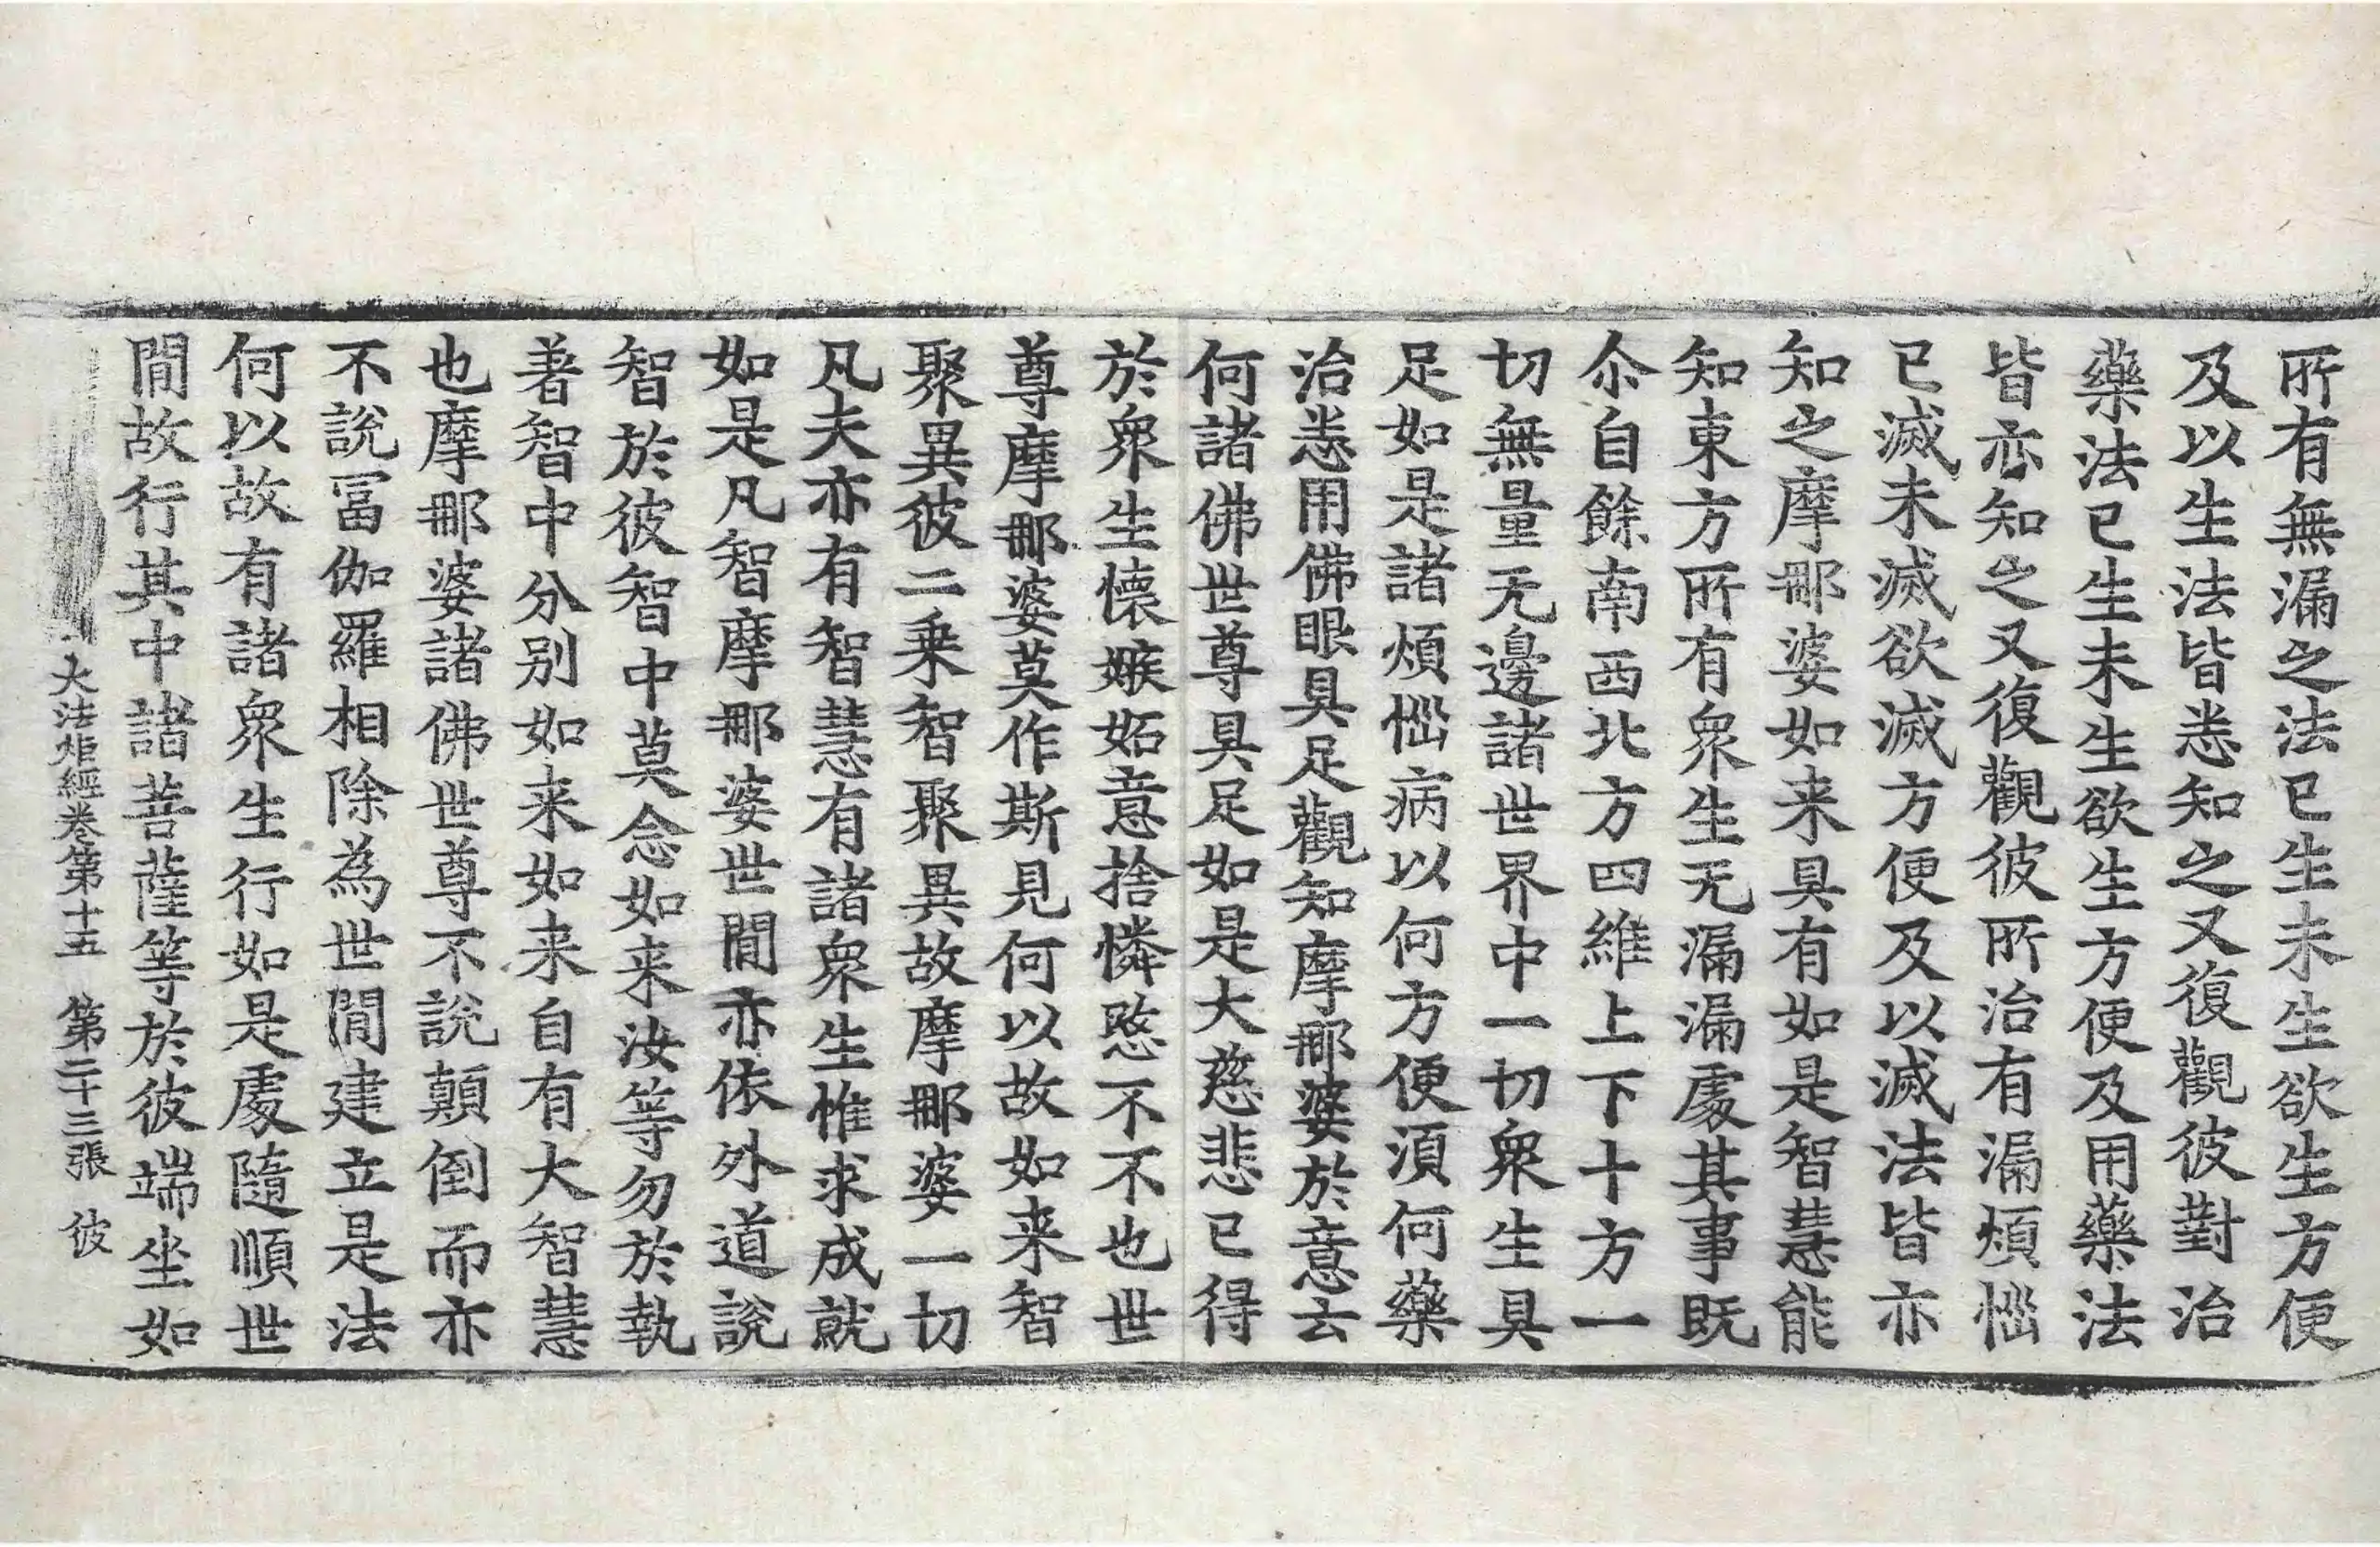 所有無漏之法已生未生欲生方便
及以生法皆悉知之又復觀彼對治
藥法已生未生欲生方便及用藥法
皆亦知之又復觀彼所治有漏煩惱
已滅未滅欲滅方便及以滅法皆亦
知之摩那婆如来具有如是智慧能
知東方所有衆生无漏漏處其事既
尒自餘南西北方四維上下十方一
切無量无邊諸世界中一切衆生具
足如是諸煩惱病以何方便須何藥
治悉用佛眼具足觀知摩那婆於意云
何諸佛世尊具足如是大慈悲已得
於衆生懐嫉妬意捨憐愍不不也世
尊摩那婆莫作斯見何以故如来智
聚異彼二乗智聚異故摩那婆一切
凡夫亦有智慧有諸衆生惟求成就
如是凡智摩那婆世間亦依外道說
智於彼智中莫念如来汝等勿於執
著智中分别如来如来自有大智慧
也摩那婆諸佛世尊不說顛倒而亦
不說冨伽羅相除為世間建立是法
何以故有諸衆生行如是處隨順世
間故行其中諸菩薩等於彼端坐如
大法炬經卷第十五　第二十三張　彼